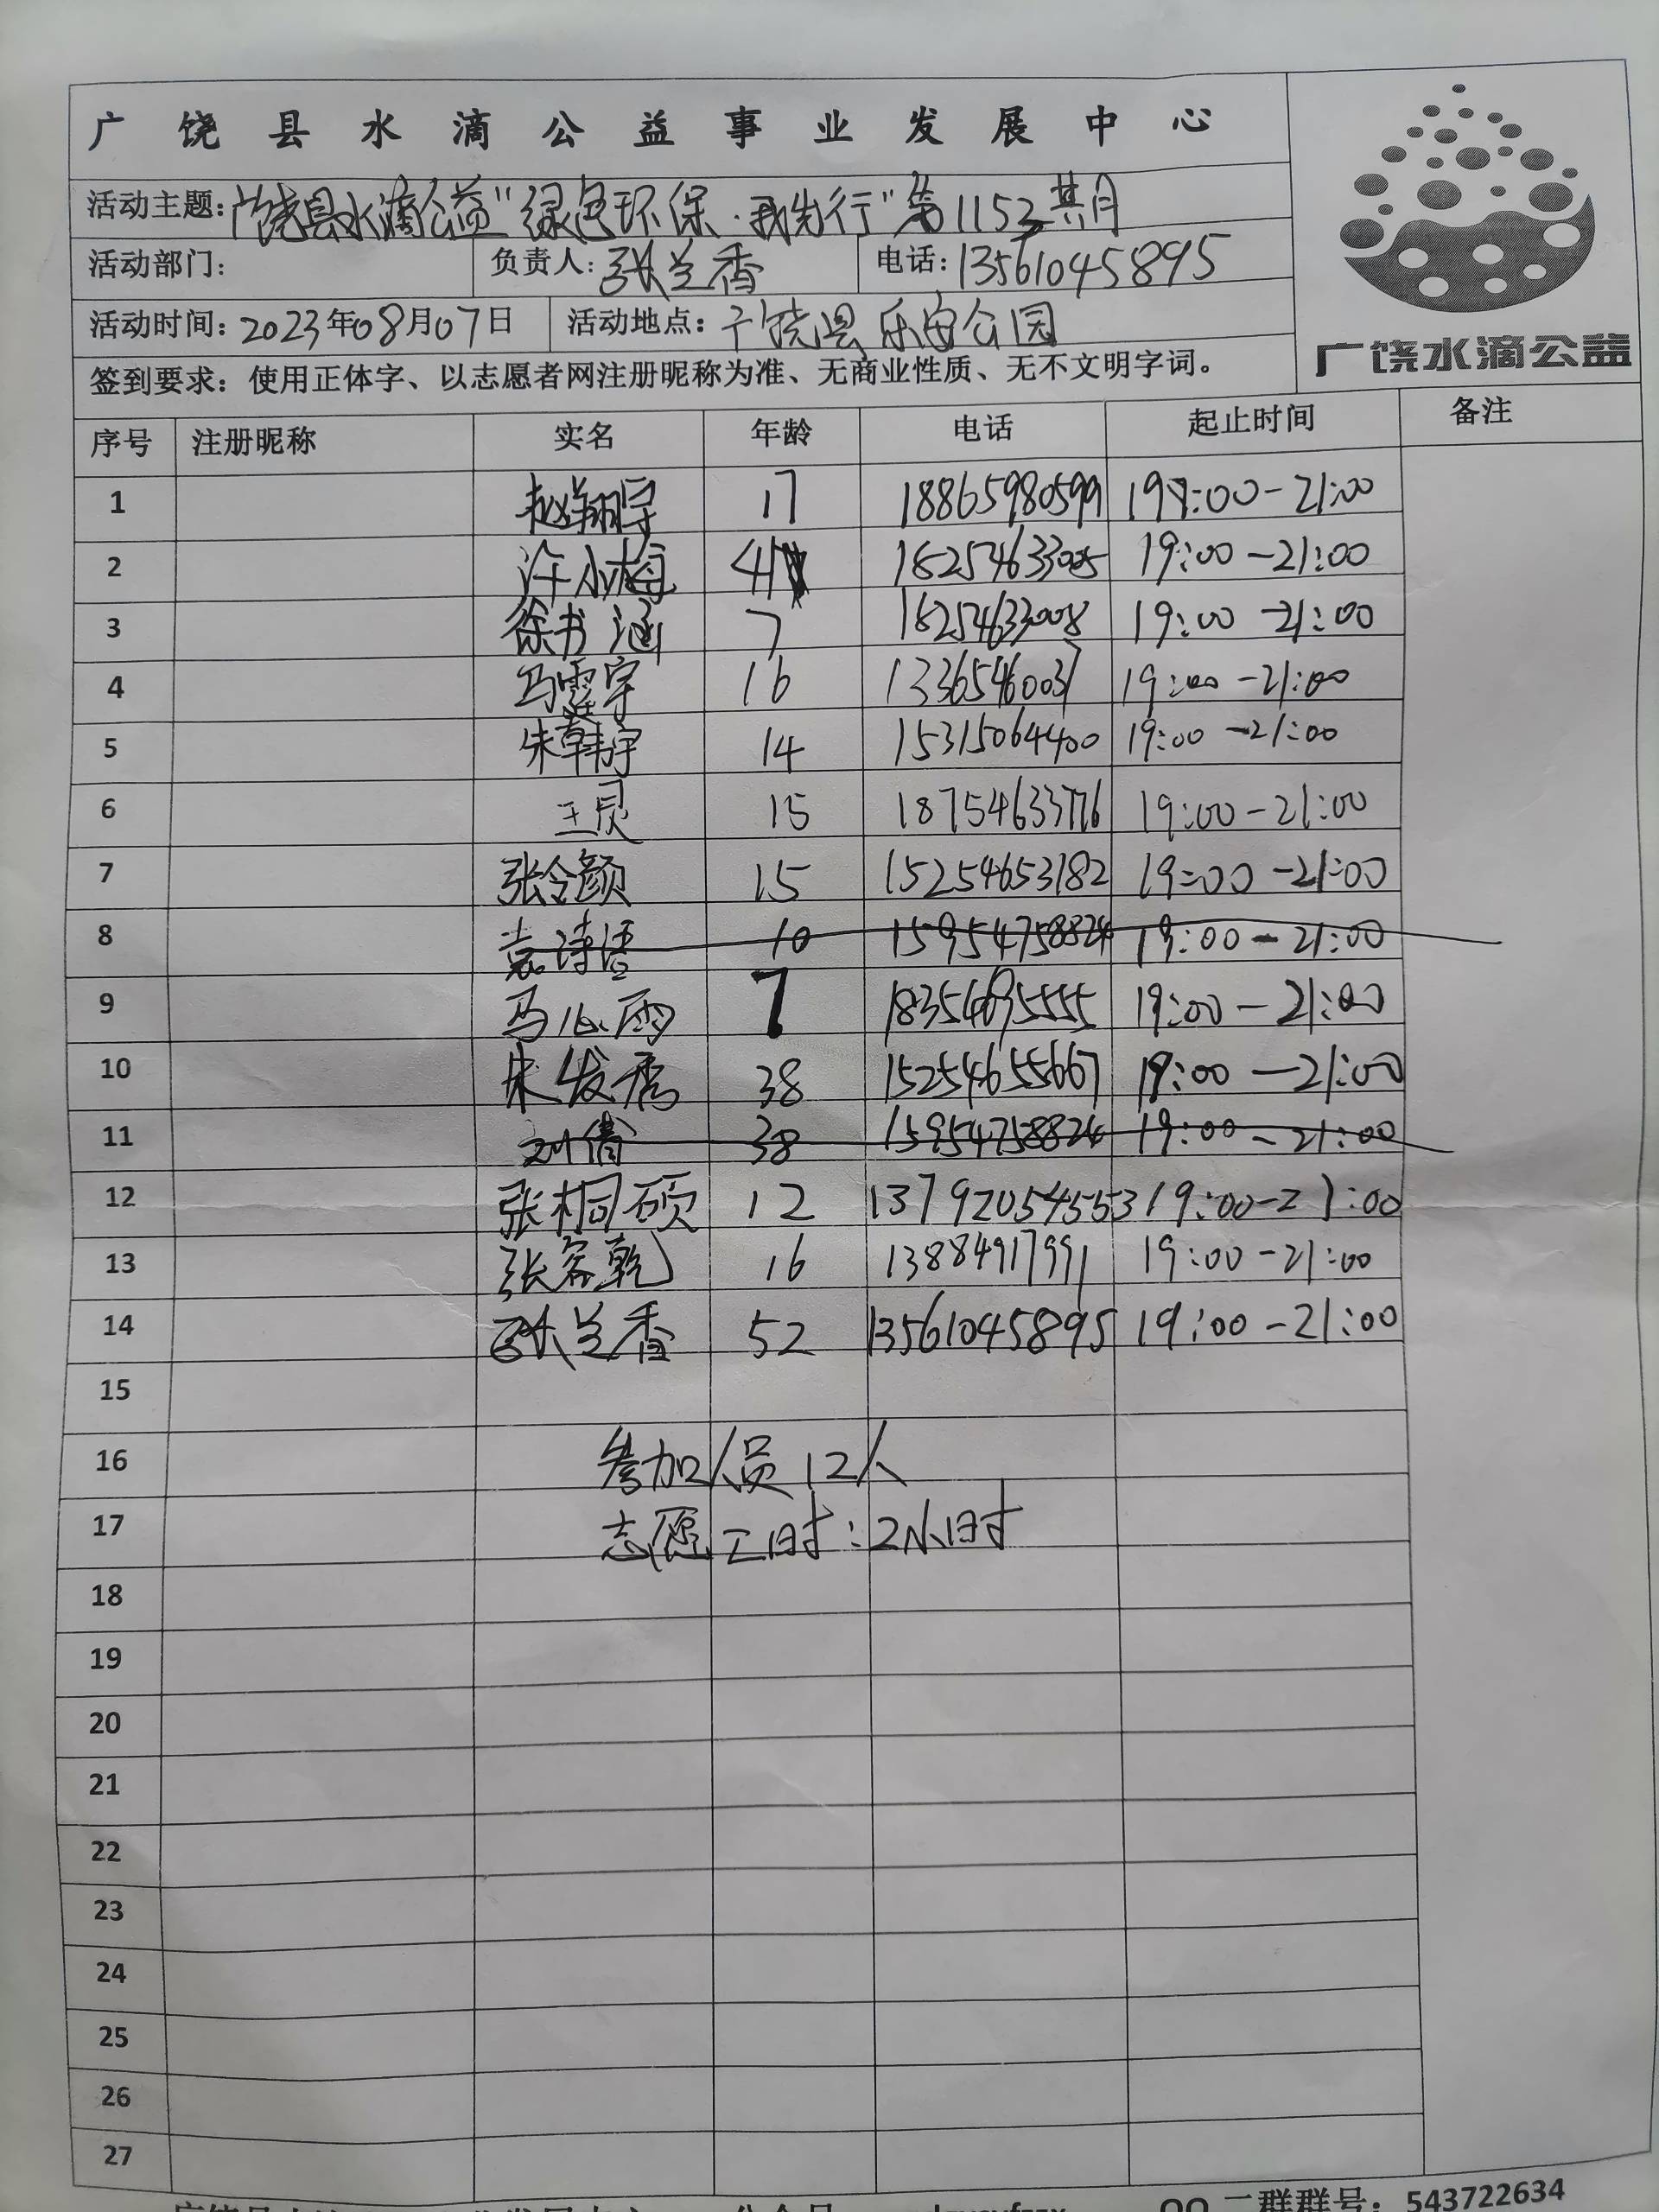 广饶县水滴公益事业发展中心
活动主题:广饶县水滴公益"绿色环保·我先行"第1153期
活动部门: 负责人:张兰香 电话:13561045895
活动时间:2023年08月07日 活动地点:广饶县乐安公园
广饶水滴公益
签到要求:使用正体字、以志愿者网注册昵称为准、无商业性质、无不文明字词。
序号 注册昵称 实名 年龄 电话 起止时间 备注
1 赵翔宇 17 18865980599 19:00-21:00
2 许小梅 41 18254633005 19:00-21:00
3 徐书涵 7 18254633008 19:00-21:00
4 马霆宇 16 13365460037 19:00-21:00
5 朱韩宇 14 15315064400 19:00-21:00
6 王灵 15 18754633776 19:00-21:00
7 张令颜 15 15254653182 19:00-21:00
8 袁诗语 10 15954758824 19:00-21:00
9 马心雨 7 18354695555 19:00-21:00
10 朱发秀 38 15254655667 19:00-21:00
11 刘倩 38 15954758824 19:00-21:00
12 张桐硕 12 13792054553 19:00-21:00
13 张容乾 16 13884917991 19:00-21:00
14 张兰香 52 13561045895 19:00-21:00
15
16 参加人员12人
17 志愿工时:2小时
18
19
20
21
22
23
24
25
26
27
QQ二群群号:543722634